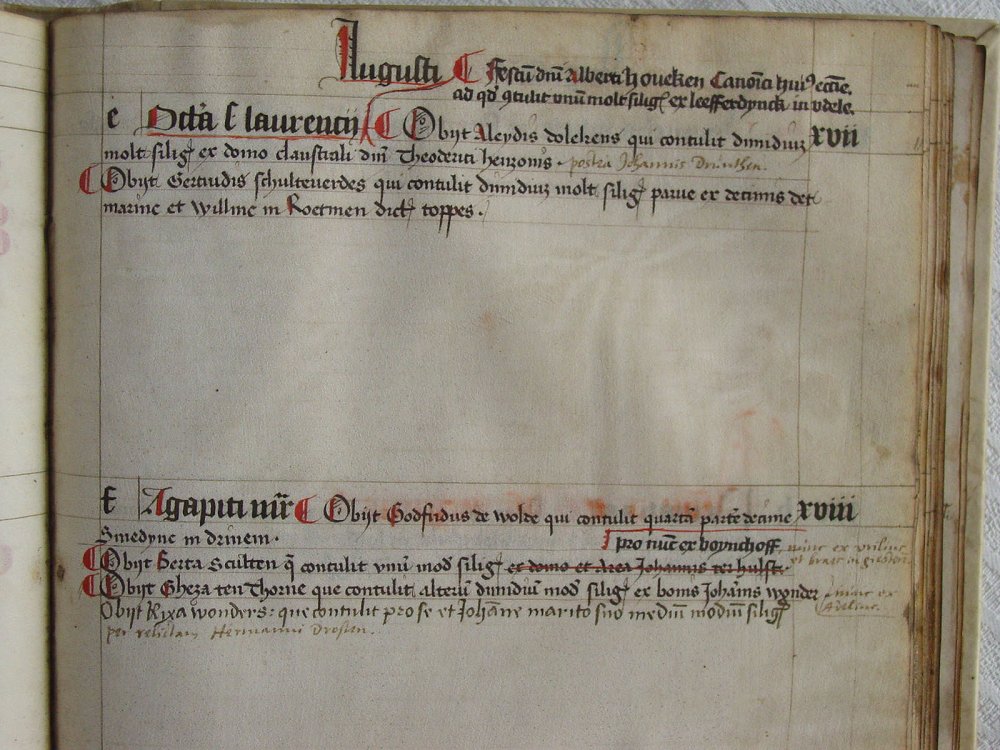 Augusti ¶ Festū dn̄i Alberti houeken Canoīci huiꝰ eccīe.
ad qd' ꝯtulit vnū molt silig' ex leefferdynck in vdele.
e Octā S laurencij ¶ Obijt Aleydis dolekens qui contulit dimidiuȝ xvii
molt silig' ex domo claustrali dn̄i Theoderici henzonis. postea Johannis Drunthen.
¶ Obijt Gertrudis schulteuerdes qui contulit dimidiuȝ molt silig' parue ex decimis det
marine et Willme in Roetmen dict' toppes.
f Agapiti mr̄ ¶ Obijt Godfridus de wolde qui contulit quartā partē decime xviii
Smedyne in drinem.
pro nūc ex boynchoff nunc ex
¶ Obijt Berta Sculten q̄ contulit vnū mod' silig' ex domo et Area Johannis ter hulst. et
¶ Obijt Gheza ten Thorne que contulit alterū dimidiū mod' silig' ex bonis Johānis wonder nunc ex
Obijt Rixa wonders: que contulit pro se et Johāne marito suo mediū modiū silig'
per relictam Hermanni Drosten.